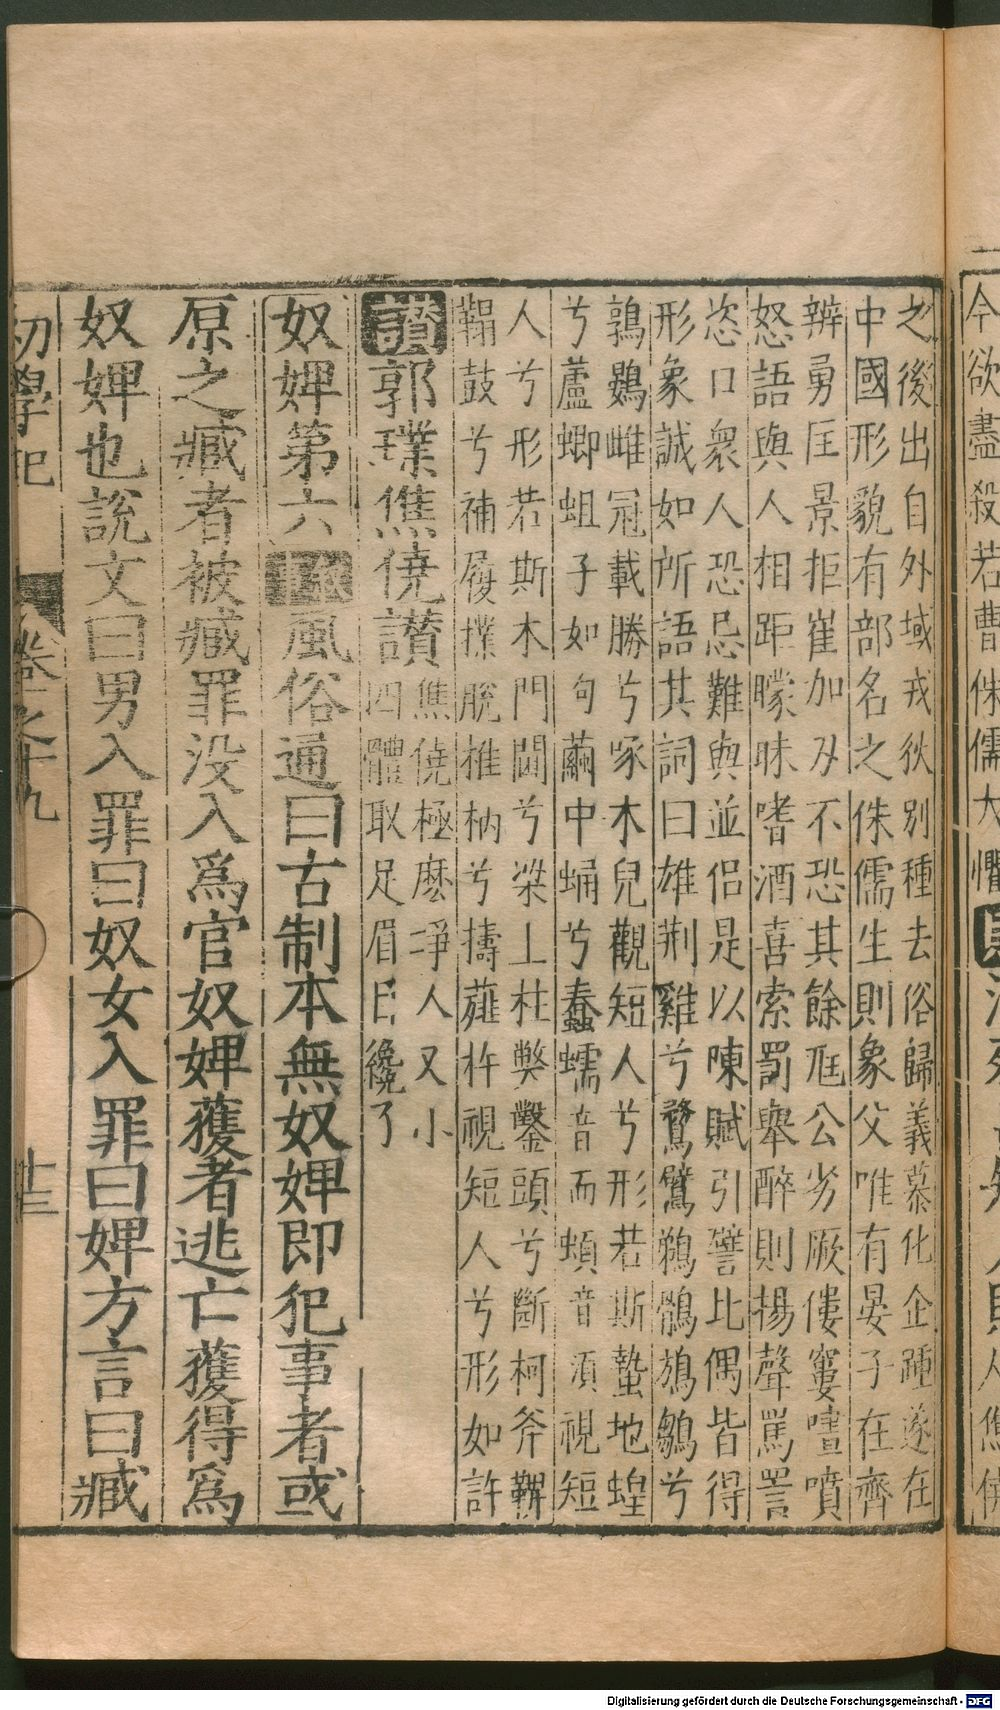 今欲盡殺若曹侏儒大懼
之後出自外域戎狄別種去俗歸義慕化企踵遂在
中國形貌有部名之侏儒生則象父唯有晏子在齊
辨勇匡景拒崔加刃不恐其餘尫公劣厥僂窶噴
怒語與人相距矇昧嗜酒喜索罰舉醉則揚聲罵詈
恣口衆人恐忌難與並侶是以陳賦引譬比偶皆得
形象誠如所語其詞曰雄荆雞兮鶩鷿鵜鶻鴆鶵兮
鶉鷃雌冠載勝兮啄木兒觀短人兮形若斯蟄地蝗
兮蘆蝍蛆子如句繭中蛹兮蠢蠕音而蝢音湏視短
人兮形若斯木門閫兮梁上柱弊鑿頭兮斷柯斧鞞
鞨鼓兮補履撲脫推枘兮擣薤杵視短人兮形如許
讚郭璞僬僥讃焦僥極麽竫人又小
四體取足眉目纔了
奴婢第六叙事風俗通曰古制本無奴婢即犯事者或
原之臧者被臧罪没入爲官奴婢獲者逃亡獲得爲
奴婢也説文曰男入罪曰奴女入罪曰婢方言曰臧
初學記 卷之十九 廿三
Digitalisierung gefördert durch die Deutsche Forschungsgemeinschaft - DFG